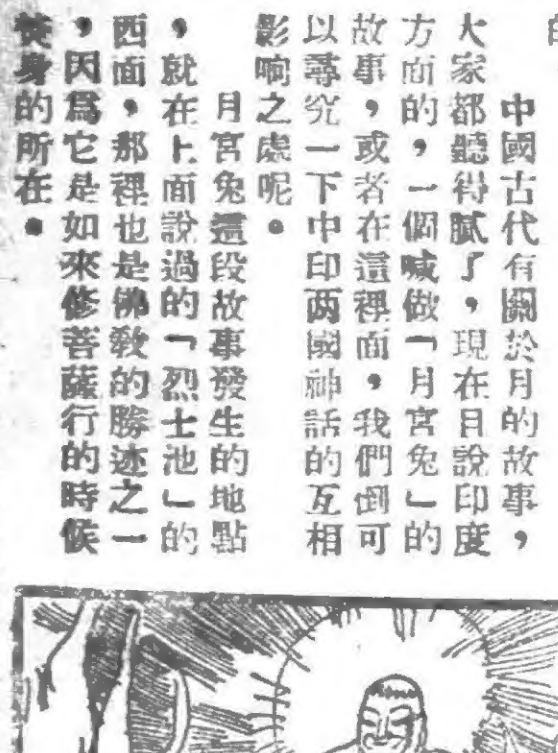 中國古代有關於月的故事，
大家都聽得膩了，現在且說印度
方面的，一個喊做「月宮兔」的
故事，或者在這裡面，我們倒可
以尋究一下中印两國神話的互相
影响之處呢。
月宮兔這段故事發生的地點
，就在上面說過的「烈士池」的
西面，那裡也是佛敎的勝迹之一
，因爲它是如來修菩薩行的時候
焚身的所在。